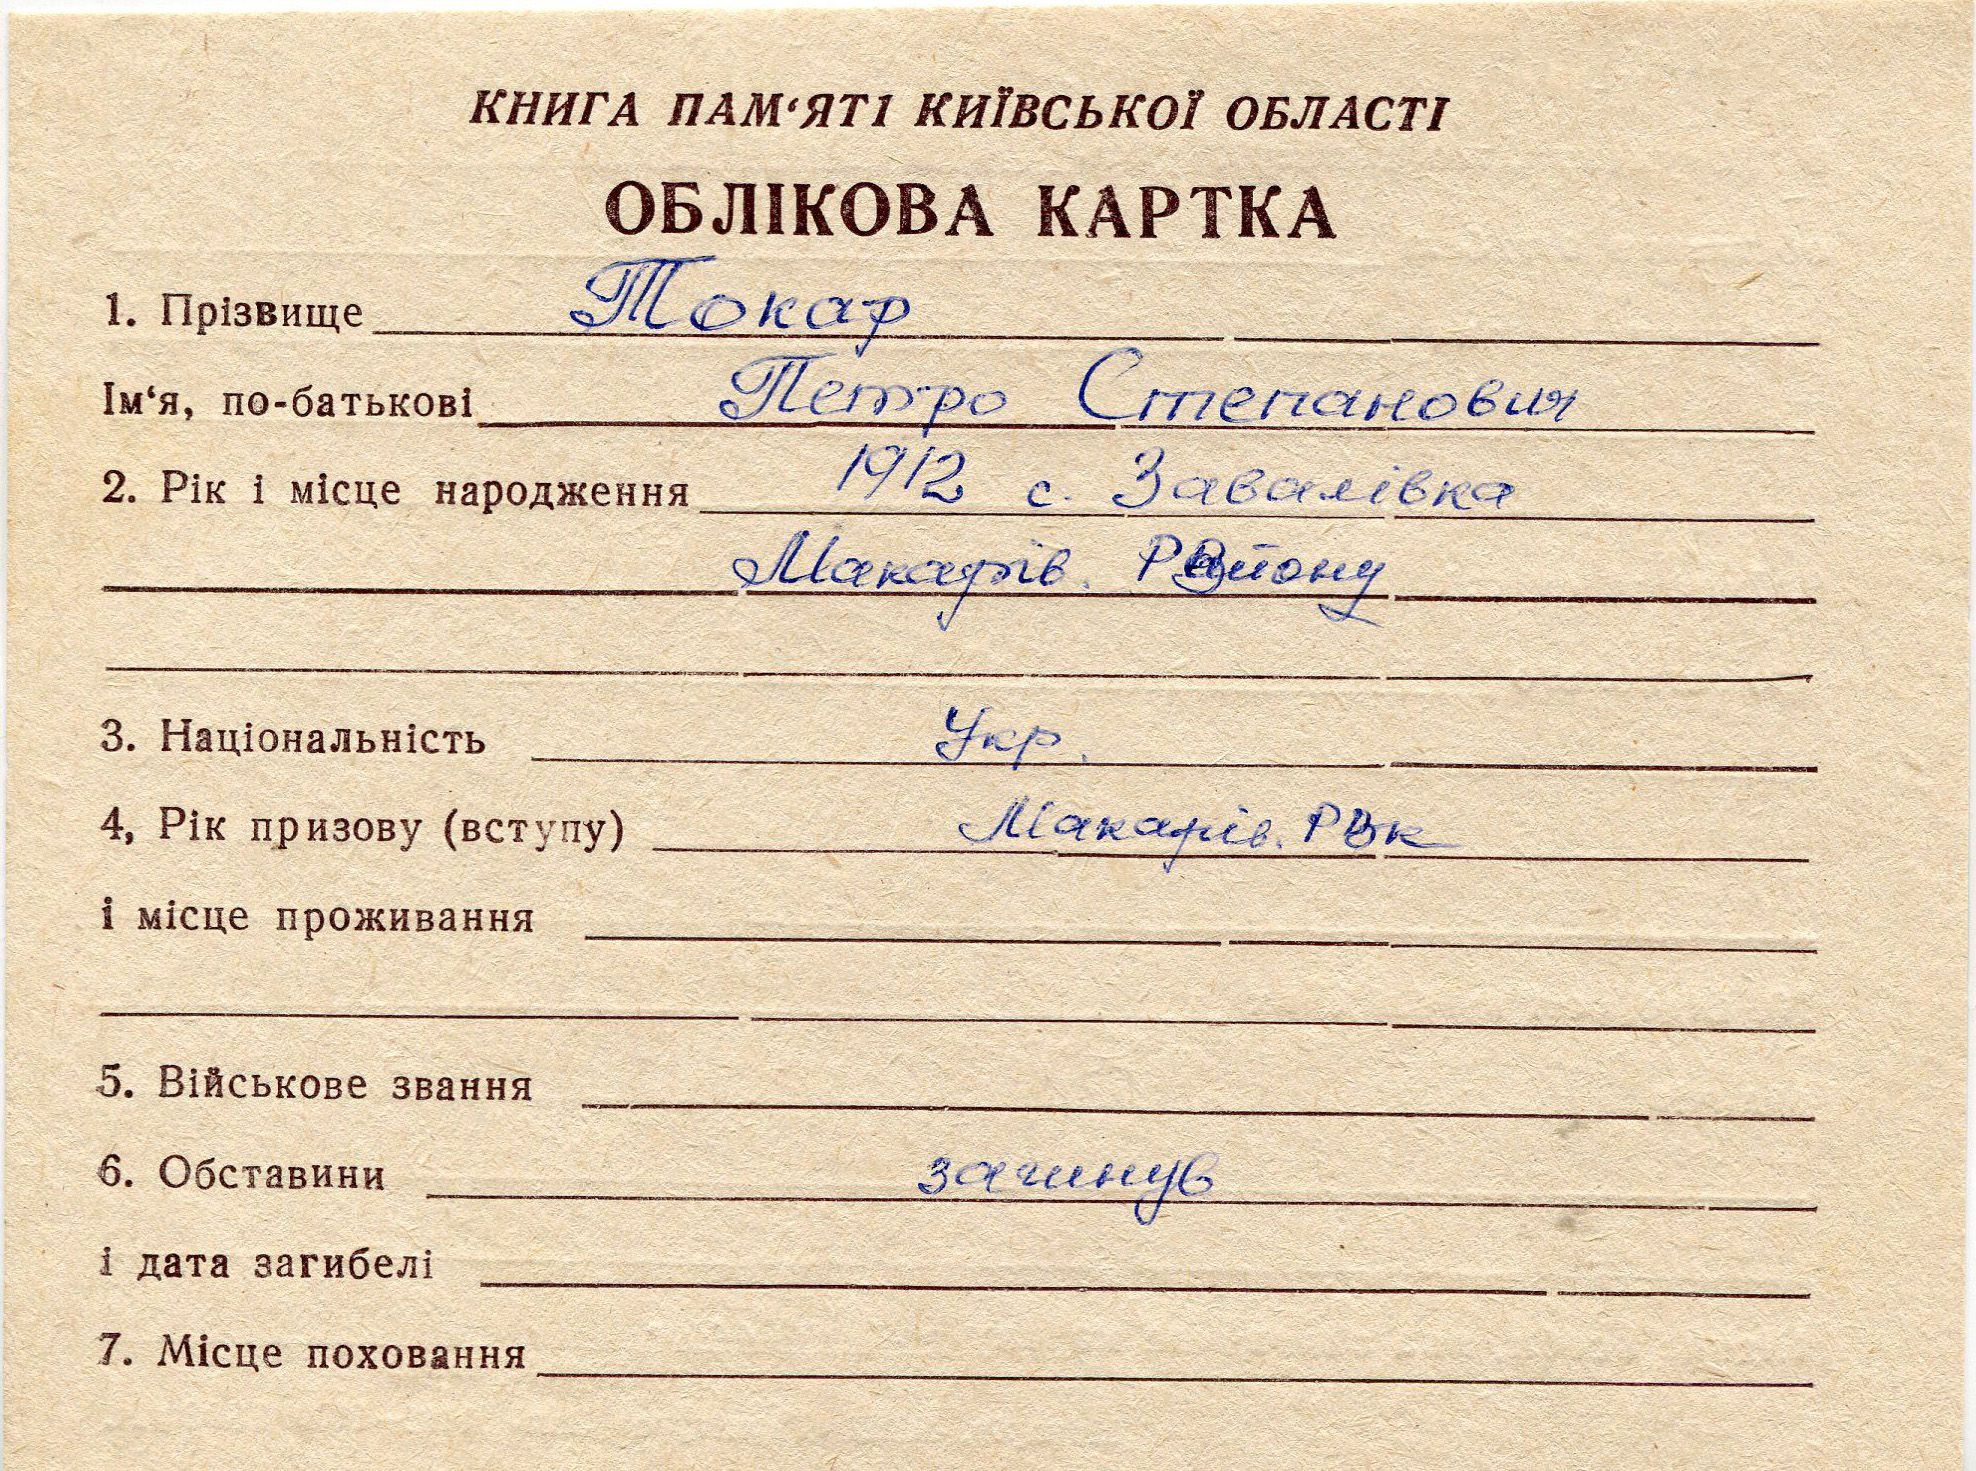 КНИГА ПАМ‘ЯТІ КИЇВСЬКОЇ ОБЛАСТІ
ОБЛІКОВА КАРТКА
1. Прізвище Токар
Ім‘я, по-батькові Петро Степанович
2. Рік і місце народження 1912 с. Завалівка
Макарів. Району
3. Національність Укр.
4, Рік призову (вступу) Макарів. РВК
і місце проживання
5. Військове звання
6. Обставини загинув
і дата загибелі
7. Місце поховання